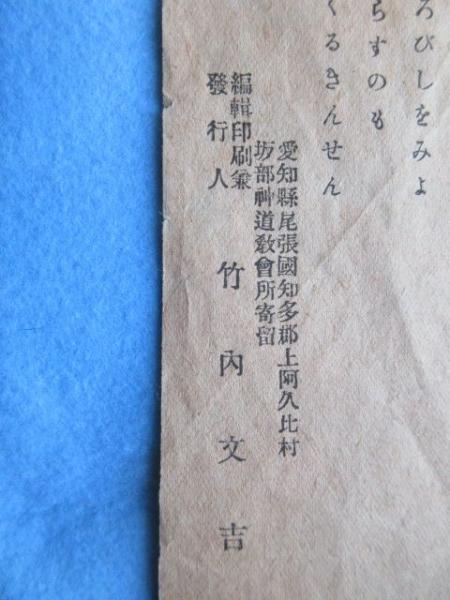 ろびしをみよ
らすのも
くるきんせん
愛知縣尾張國知多郡上阿久比村
坊部神道敎會所寄留
編輯印刷兼
發行人
竹內文吉